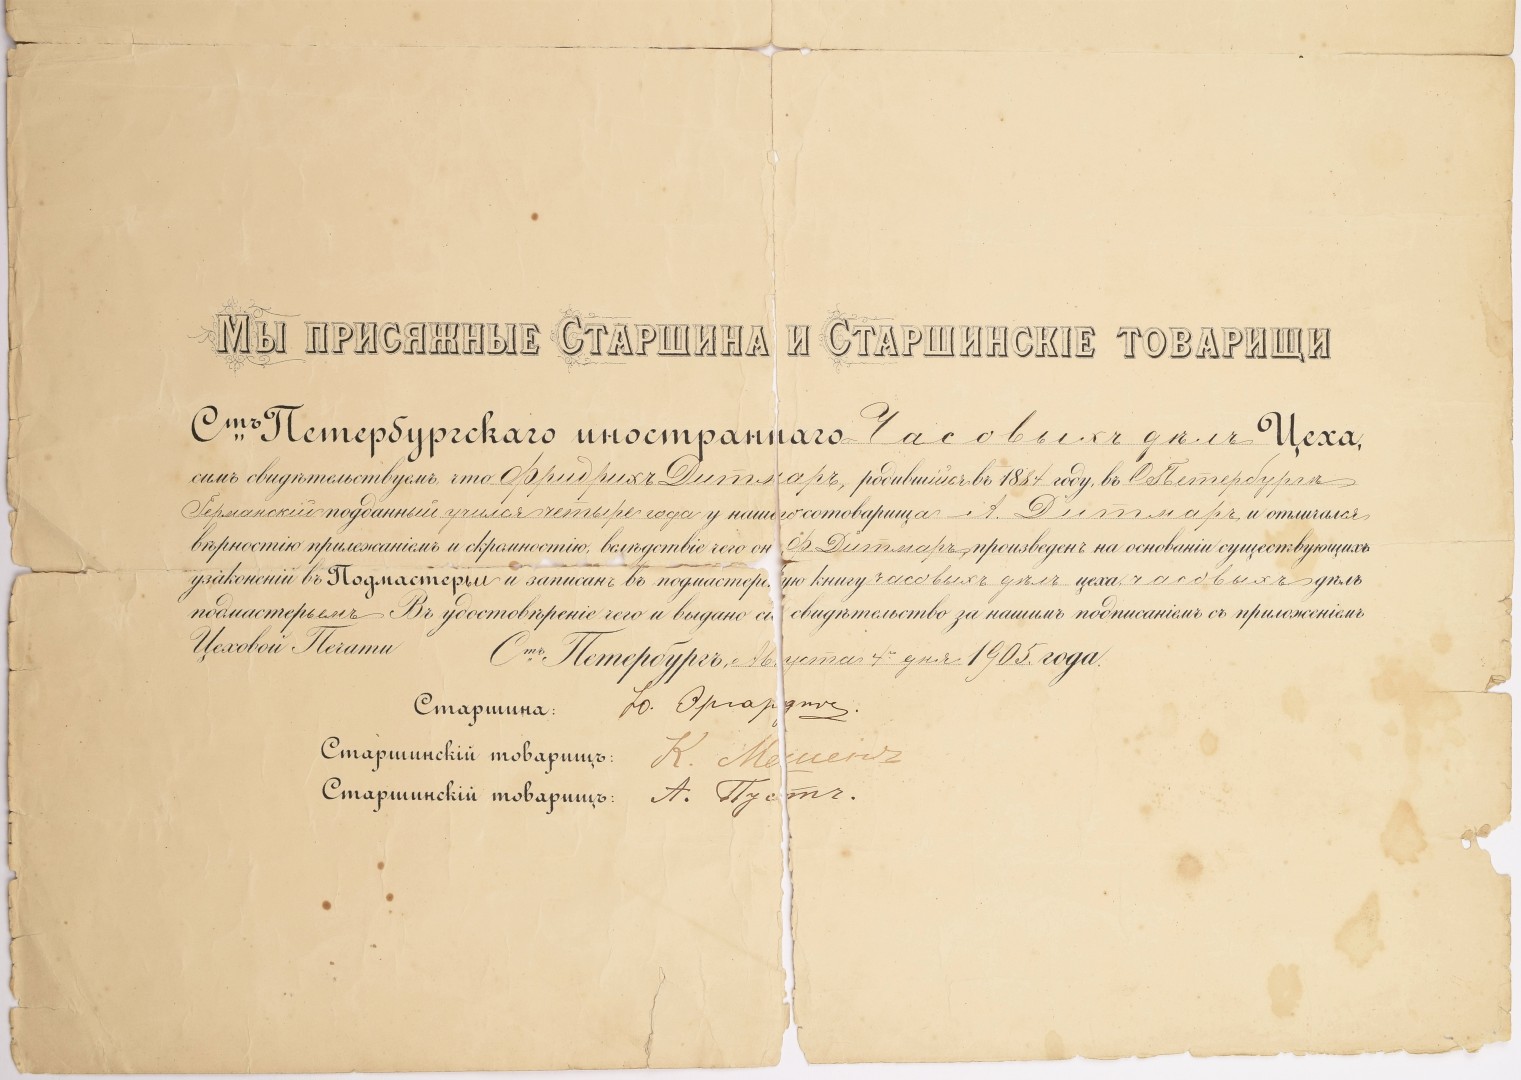 Мы присяжные Старшина и Старшинскіе товарищи
Стъ Петербургскаго иностраннаго Часовыхъ дѣлъ Цеха,
симъ свидѣтельствуемъ, что Фридрихъ Дитмаръ, родившійся въ 1884 году, въ С Петербургѣ
Германскій подданный учился четыре года у нашего сотоварища А. Дитмаръ и отличался
вѣрностію прилежаніемъ и скромностію, вслѣдствіе чего он Ф Дитмаръ, произведенъ на основаніи существующихъ
узаконеній въ Подмастерьи и записанъ въ подмастерскую книгу часовыхъ дѣлъ цеха, часовыхъ дѣлъ
подмастерьемъ Въ удостовѣреніе чего и выдано сіе свидѣтельство за нашимъ подписаніемъ съ приложеніемъ
Цеховой Печати
Стъ Петербургъ, Августа 4го дня 1905 года.
Старшина: Ю.
Старшинскій товарищъ: К.
Старшинскій товарищъ: А. Пустъ.